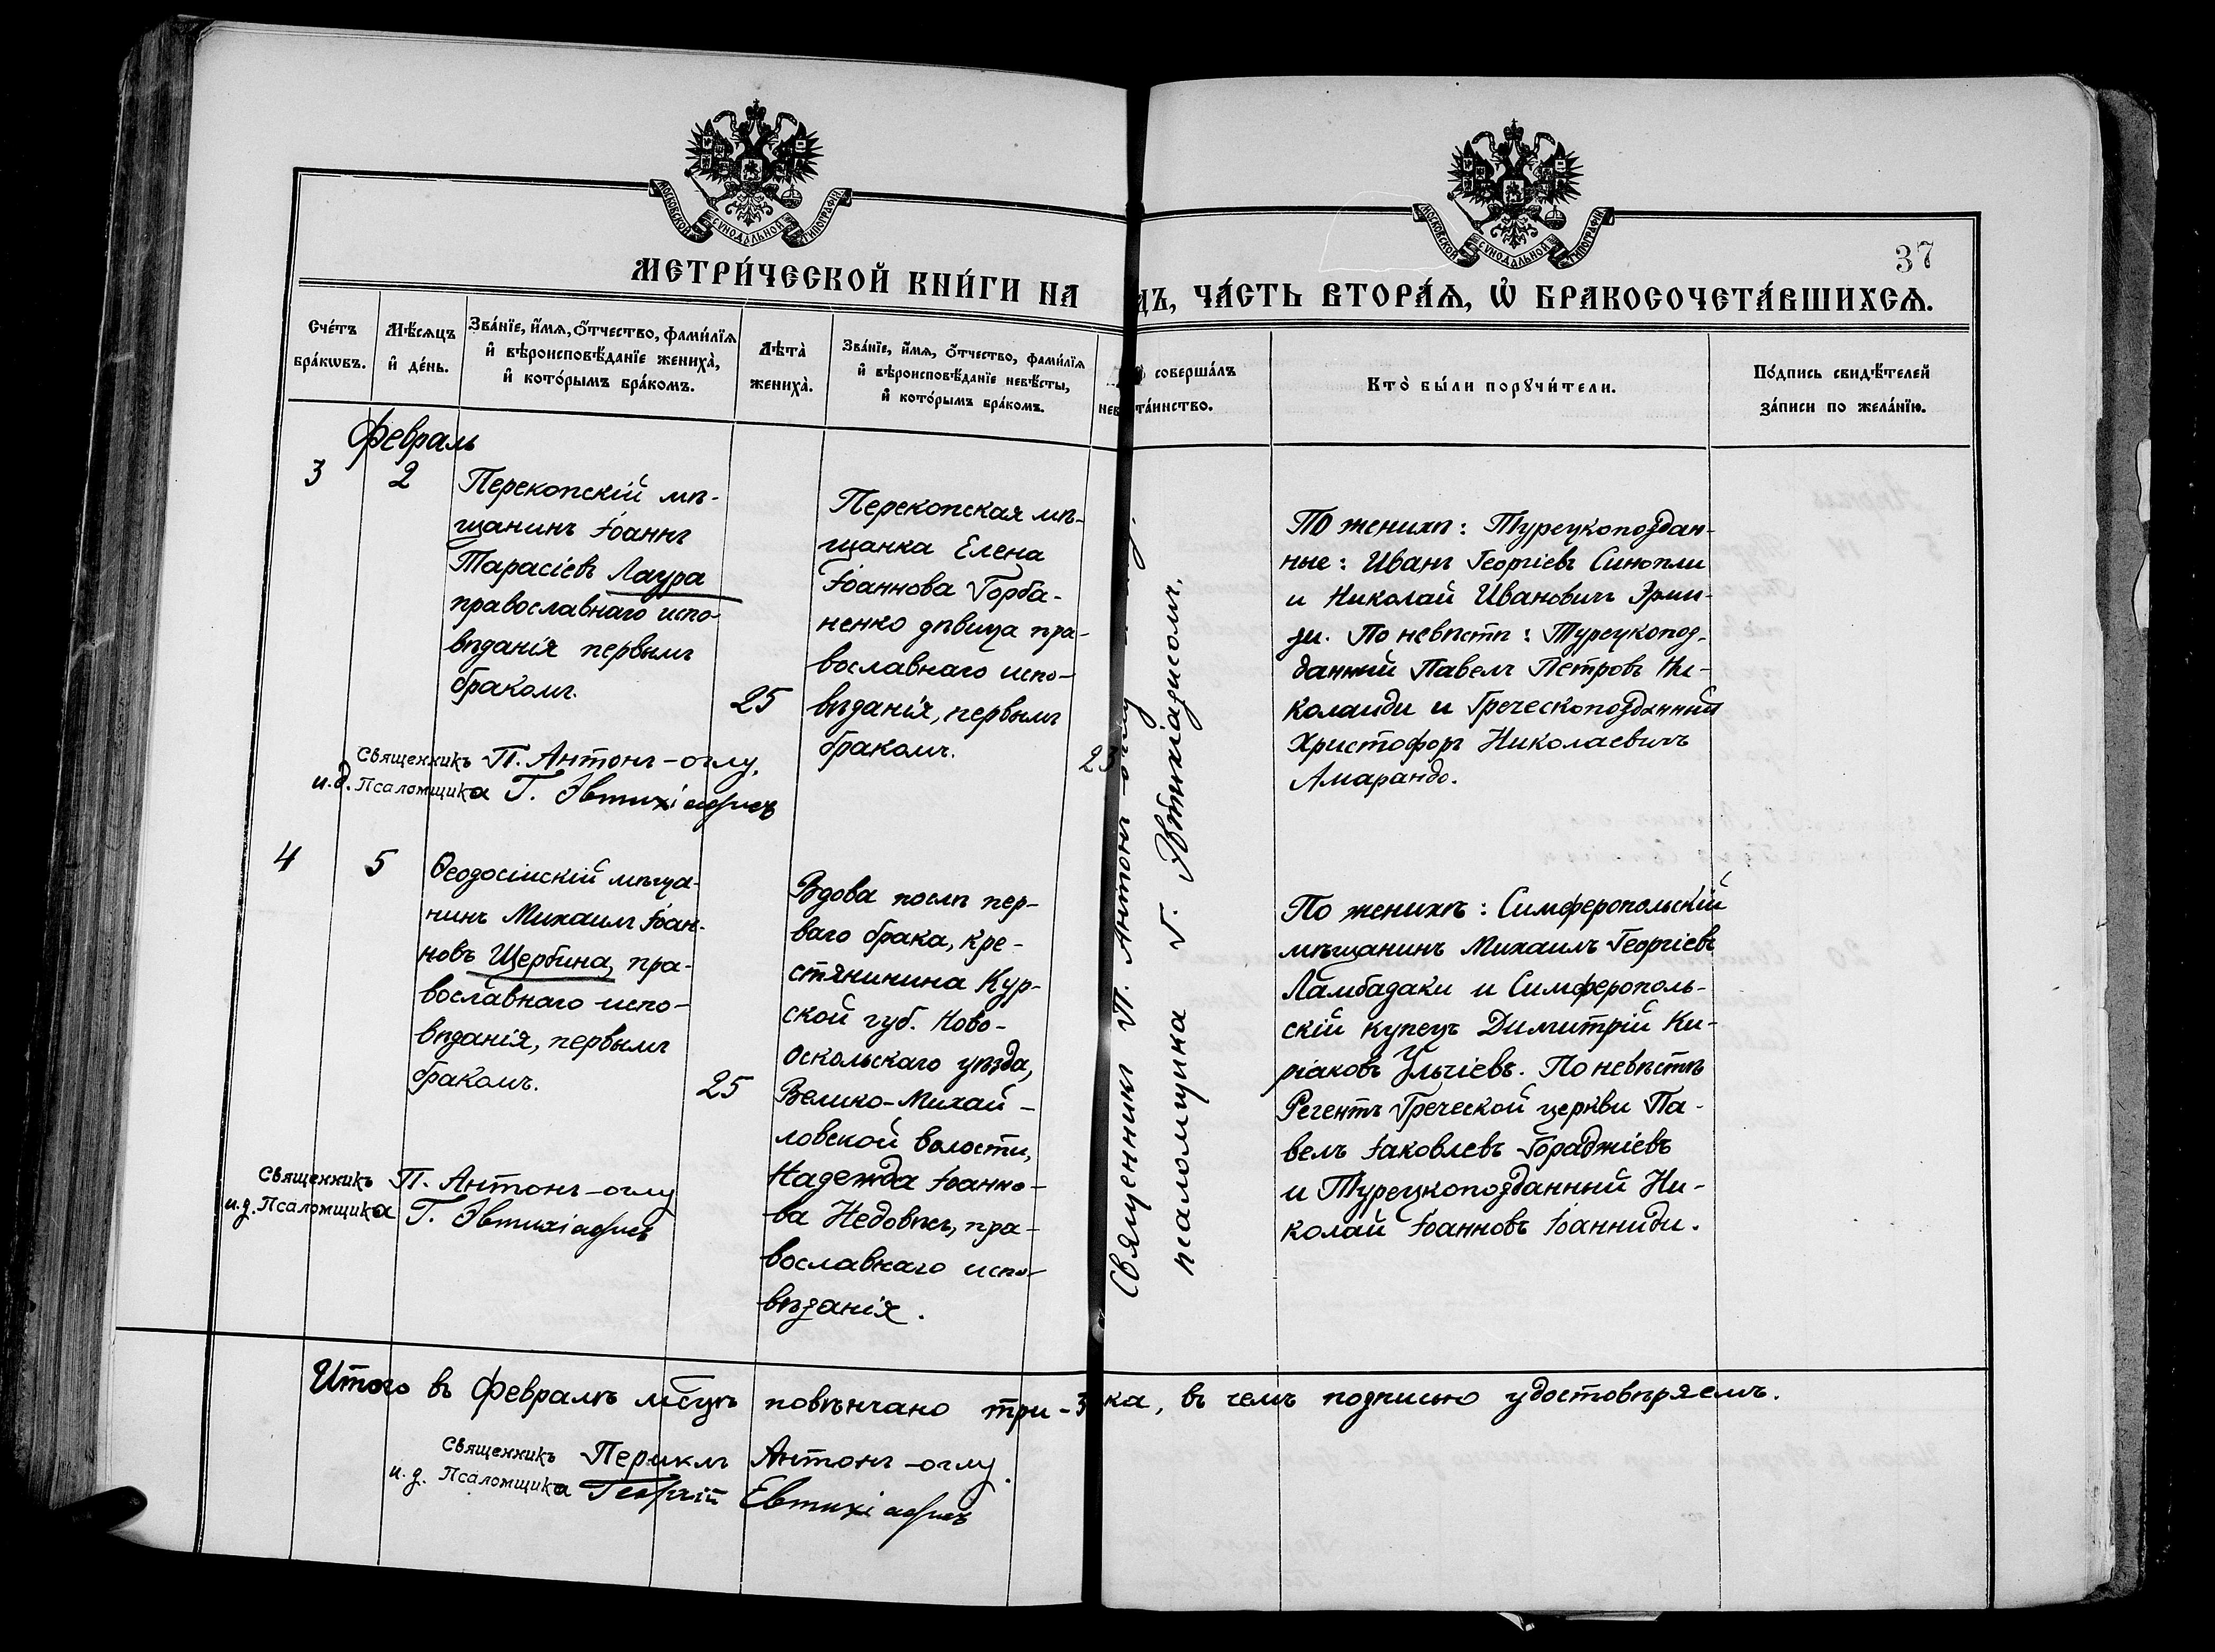 МОСКОВСКОЙ СУНОДАЛЬНОЙ ТИПОГРАФІИ
МОСКОВСКОЙ СУНОДАЛЬНОЙ ТИПОГРАФІИ
37
МЕТРИ́ЧЕСКОЙ КНИ́ГИ НА
ДЪ, ЧА́СТЬ ВТОРА́Я, Ѡ҆ БРАКОСОЧЕТА́ВШИХСЯ.
Сче́тъ
бра́кѡвъ.
Мѣ́сяцъ
и҆ де́нь.
Зва́нїе, и҆́мя, ѻ҆́тчество, фами́лїя
и҆ вѣроисповѣ́данїе жениха̀,
и҆ кото́рымъ бра́комъ.
Лѣта̀
жениха̀.
Зва́нїе, и҆́мя, ѻ҆́тчество, фами́лїя
и҆ вѣроисповѣ́данїе невѣ́сты,
и҆ кото́рымъ бра́комъ.
нев
соверша́лъ
та́инство.
Кто̀ бы́ли порꙋчи́тели.
По́дпись свидѣ́телей
за́писи по жела́нїю.
Февраль
3
2
Перекопскій мѣ-
щанинъ Іоаннъ
Тарасіевъ Лаура
православнаго испо-
вѣданія первымъ
бракомъ.
25
Перекопская мѣ-
щанка Елена
Іоаннова Горба-
ненко дѣвица пра-
вославнаго испо-
вѣданія, первымъ
бракомъ.
23
По женихѣ: Турецкоподдан-
ные: Иванъ Георгіевъ Синопли
и Николай Ивановичъ Эрми-
ди. По невѣстѣ: Турецкопод-
данный Павелъ Петровъ Ни-
колаиди и Греческоподданный
Христофоръ Николаевичъ
Амарандо.
Священникъ П. Антонъ-оглу.
и.д. Псаломщика Г. Эвтихіадисъ
4
5
Ѳеодосійскій мѣща-
нинъ Михаилъ Іоан-
новъ Щербина, пра-
вославнаго испо-
вѣданія, первымъ
бракомъ.
25
Вдова послѣ пер-
ваго брака, кре-
стянинина Кур-
ской губ. Ново-
оскольскаго уѣзда,
Велико-Михай-
ловской волости,
Надежда Іоанно-
ва Недовѣсъ, пра-
вославнаго испо-
вѣданія.
Священникъ П. Антонъ-оглу
псаломщика Г. Эвтихіадисомъ.
По женихѣ: Симферопольскій
мѣщанинъ Михаилъ Георгіевъ
Ламбадаки и Симферополь-
скій купецъ Димитрій Ки-
ріаковъ Ульчіевъ. По невѣстѣ
Регентъ Греческой церкви Па-
велъ Іаковлевъ Гораджіевъ
и Турецкоподданный Ни-
колай Іоанновъ Іоанниди.
Священникъ П. Антонъ-оглу
и.д. Псаломщика Г. Эвтихіадисъ
Итого въ Февралѣ м̃сцѣ повѣнчано три-3 ка, въ чемъ подписью удостовѣряемъ.
Священникъ Периклъ Антонъ-оглу.
и.д. Псаломщика Георгій Евтихіадисъ